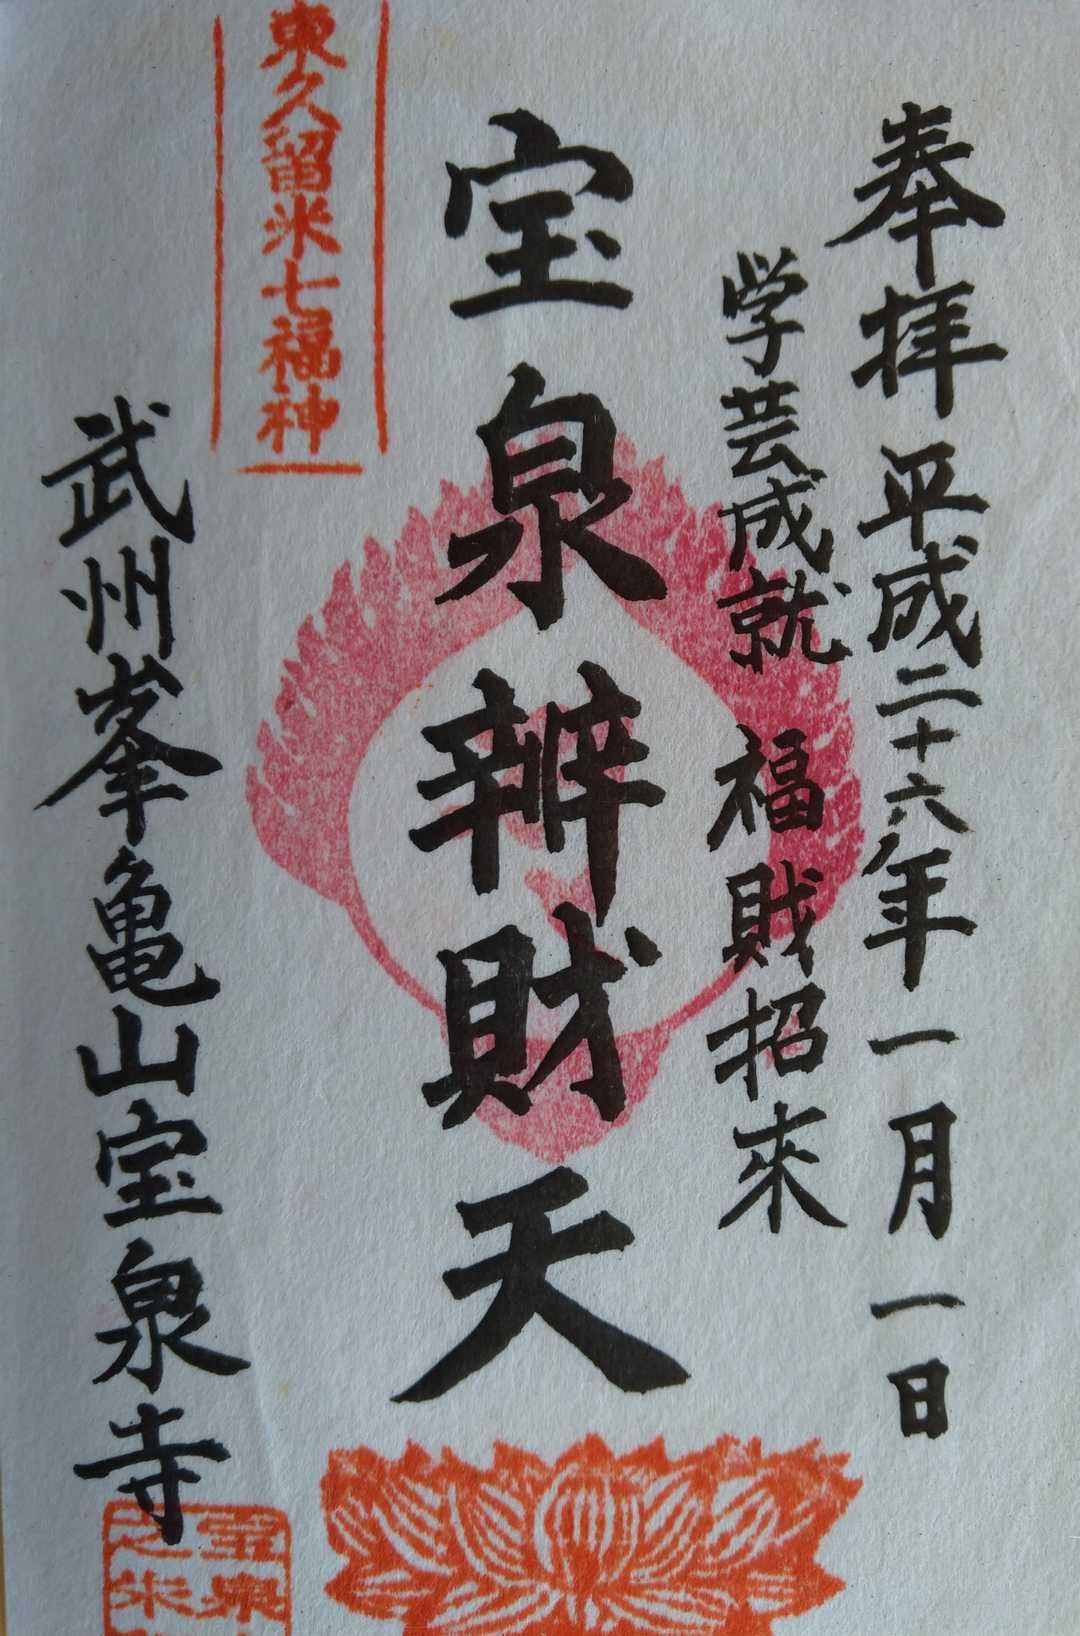 奉拝 平成二十六年一月一日
学芸成就 福財招来
宝泉辨財天
東久留米七福神
武州峯亀山宝泉寺
宝泉
之米